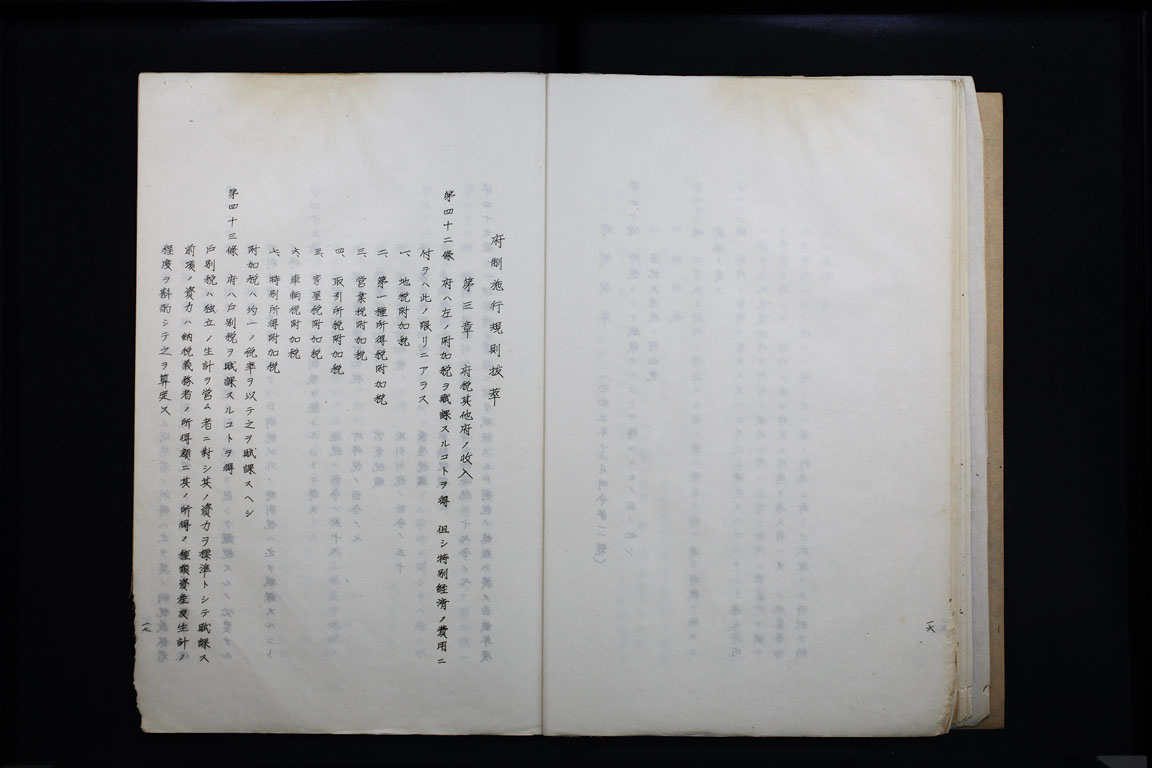 一六
府制施行規則抜萃
第三章　府税其他府ノ收入
第四十二條　府ハ左ノ附加税ヲ賦課スルコトヲ得　但シ特別経済ノ費用ニ
付テハ此ノ限リニアラス
一、地税附加税
二、第一種所得税附加税
三、営業税附加税
四、取引所税附加税
五、家屋税附加税
六、車輌税附加税
七、特別所得附加税
附加税ハ均一ノ税率ヲ以テ之ヲ賦課スヘシ
第四十三條　府ハ戸別税ヲ賦課スルコトヲ得
戸別税ハ独立ノ生計ヲ営ム者ニ對シ其ノ資力ヲ標準トシテ賦課ス
前項ノ資力ハ納税義務者ノ所得額ニ其ノ所得ノ種類資産及生計ノ
程度ヲ斟酌シテ之ヲ算定ス
一七